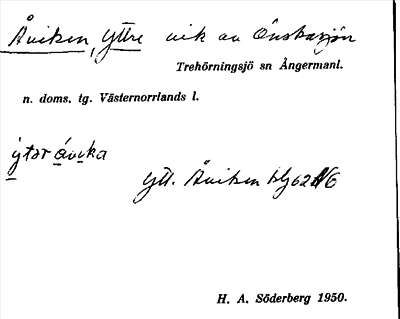 Åviken, Yttre vik av Önskasjön
Trehörningsjö sn Ångermanl.
n. doms. tg. Västernorrlands l.
ýtər ávika
ytt. Åviken blj 62 NG
H. A. Söderberg 1950.